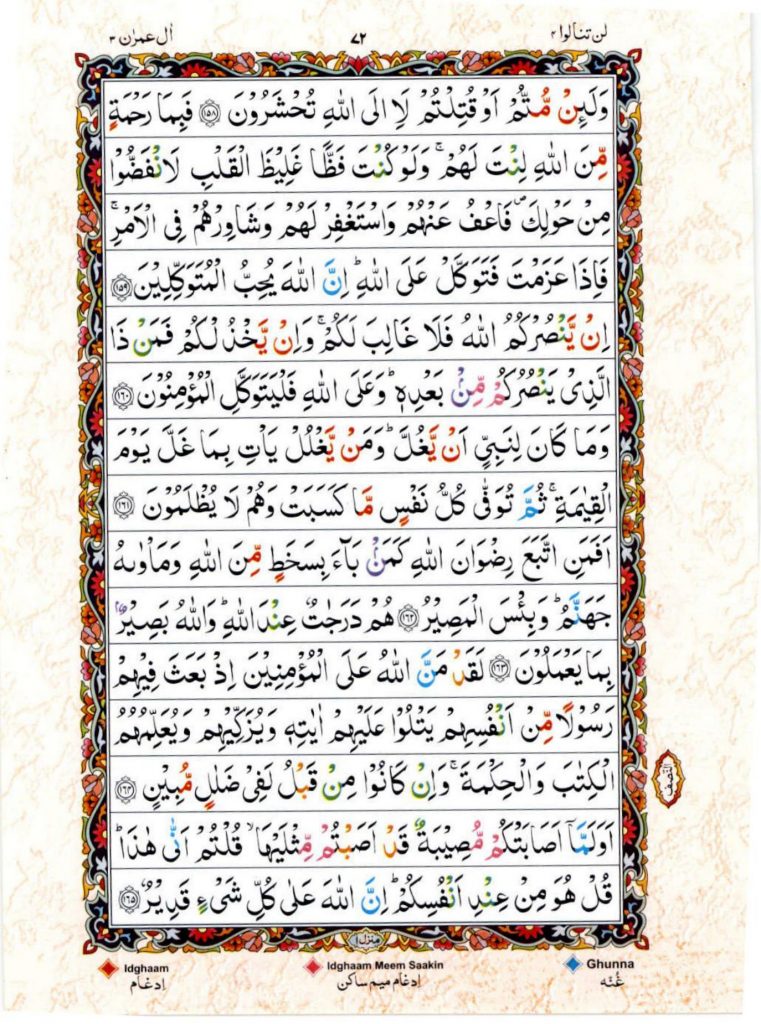 لن تنالوا ۴ ۷۲ اٰل عمرٰن ۳
وَلَئِنْ مُّتُّمْ اَوْ قُتِلْتُمْ لَاِ۟الَى اللّٰهِ تُحْشَرُوْنَ ﴿۱۵۸﴾ فَبِمَا رَحْمَةٍ
مِّنَ اللّٰهِ لِنْتَ لَهُمْ ۚ وَلَوْ كُنْتَ فَظًّا غَلِيْظَ الْقَلْبِ لَانْفَضُّوْا
مِنْ حَوْلِكَ ۪ فَاعْفُ عَنْهُمْ وَاسْتَغْفِرْ لَهُمْ وَشَاوِرْهُمْ فِى الْاَمْرِ ۚ
فَاِذَا عَزَمْتَ فَتَوَكَّلْ عَلَى اللّٰهِ ؕ اِنَّ اللّٰهَ يُحِبُّ الْمُتَوَكِّلِيْنَ ﴿۱۵۹﴾
اِنْ يَّنْصُرْكُمُ اللّٰهُ فَلَا غَالِبَ لَكُمْ ۚ وَاِنْ يَّخْذُلْكُمْ فَمَنْ ذَا
الَّذِىْ يَنْصُرُكُمْ مِّنْۢ بَعْدِهٖ ؕ وَعَلَى اللّٰهِ فَلْيَتَوَكَّلِ الْمُؤْمِنُوْنَ ﴿۱۶۰﴾
وَمَا كَانَ لِنَبِىٍّ اَنْ يَّغُلَّ ؕ وَمَنْ يَّغْلُلْ يَاْتِ بِمَا غَلَّ يَوْمَ
الْقِيٰمَةِ ۚ ثُمَّ تُوَفّٰى كُلُّ نَفْسٍ مَّا كَسَبَتْ وَهُمْ لَا يُظْلَمُوْنَ ﴿۱۶۱﴾
اَفَمَنِ اتَّبَعَ رِضْوَانَ اللّٰهِ كَمَنْۢ بَآءَ بِسَخَطٍ مِّنَ اللّٰهِ وَمَاْوٰٮهُ
جَهَنَّمُ ؕ وَبِئْسَ الْمَصِيْرُ ﴿۱۶۲﴾ هُمْ دَرَجٰتٌ عِنْدَ اللّٰهِ ؕ وَاللّٰهُ بَصِيْرٌۢ
بِمَا يَعْمَلُوْنَ ﴿۱۶۳﴾ لَقَدْ مَنَّ اللّٰهُ عَلَى الْمُؤْمِنِيْنَ اِذْ بَعَثَ فِيْهِمْ
رَسُوْلًا مِّنْ اَنْفُسِهِمْ يَتْلُوْا عَلَيْهِمْ اٰيٰتِهٖ وَيُزَكِّيْهِمْ وَيُعَلِّمُهُمُ
الْكِتٰبَ وَالْحِكْمَةَ ۚ وَاِنْ كَانُوْا مِنْ قَبْلُ لَفِىْ ضَلٰلٍ مُّبِيْنٍ ﴿۱۶۴﴾
النصف
اَوَلَمَّاۤ اَصَابَتْكُمْ مُّصِيْبَةٌ قَدْ اَصَبْتُمْ مِّثْلَيْهَا ۙ قُلْتُمْ اَنّٰى هٰذَا ؕ
قُلْ هُوَ مِنْ عِنْدِ اَنْفُسِكُمْ ؕ اِنَّ اللّٰهَ عَلٰى كُلِّ شَىْءٍ قَدِيْرٌ ﴿۱۶۵﴾
منزل ۱
Idghaam Idghaam Meem Saakin Ghunna
اِدغَام اِدغَام میم ساکن غُنّه